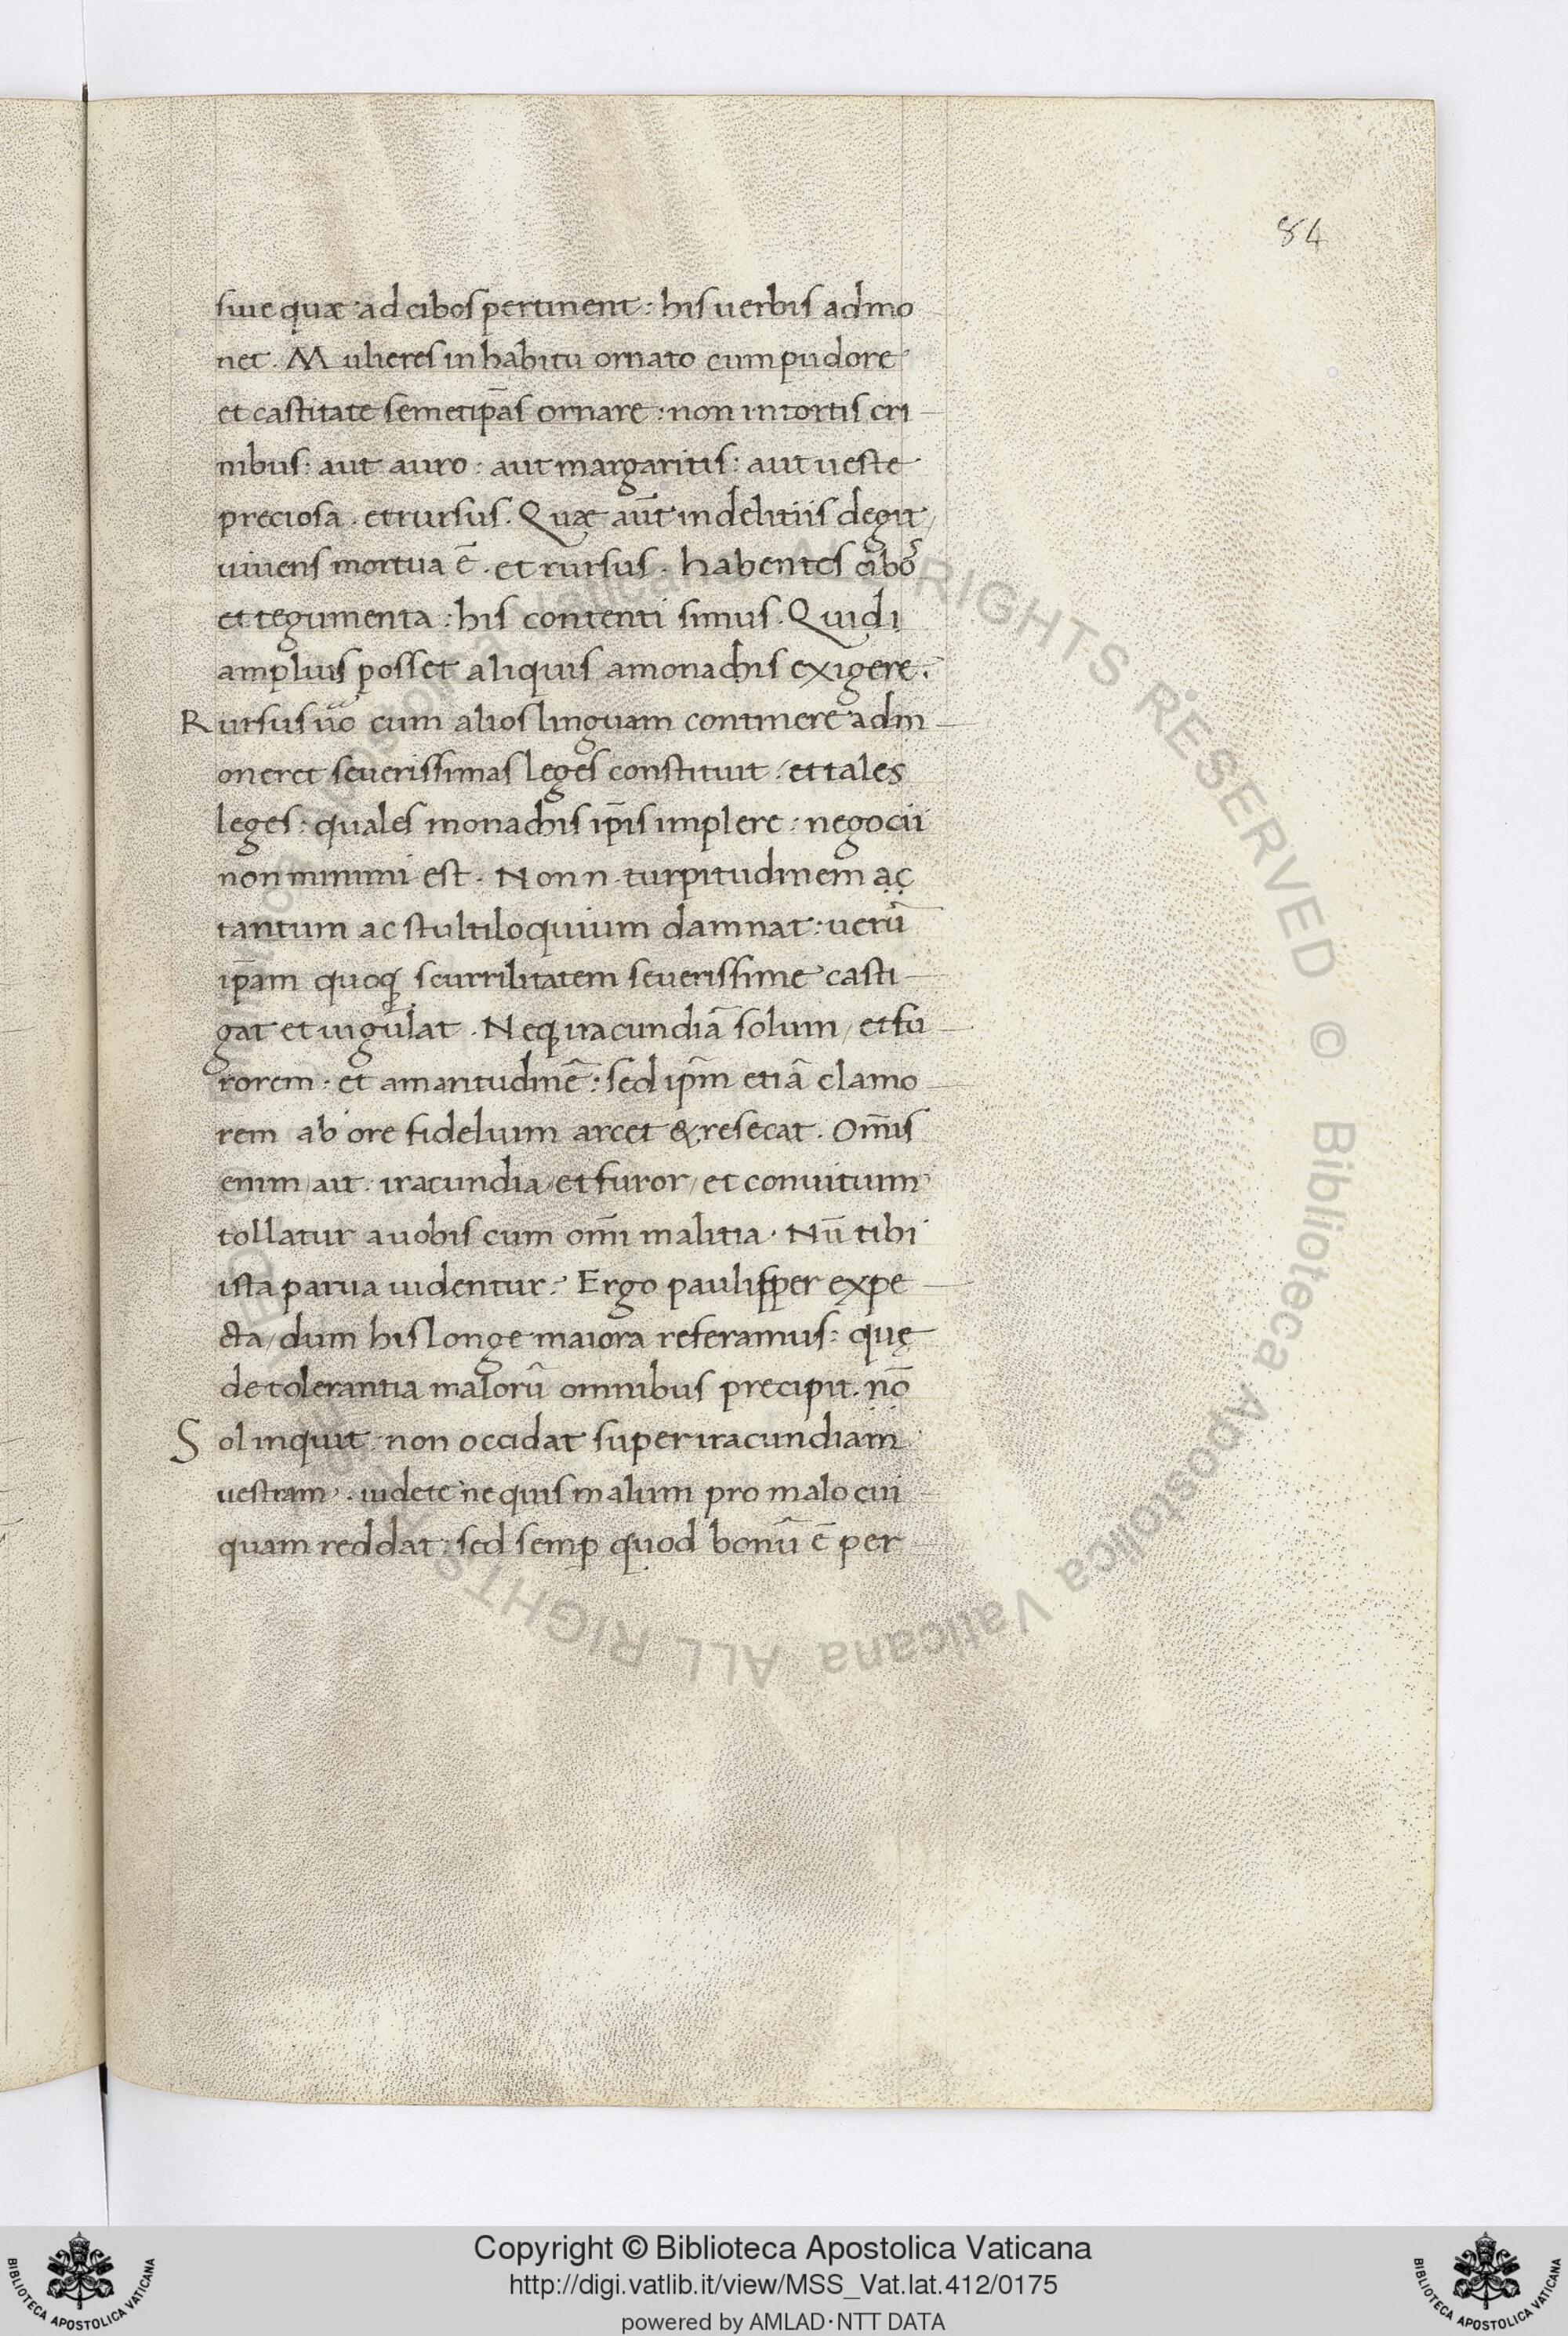 84
siue quæ ad cibos pertinent: his uerbis admo
net. Mulieres in habitu ornato cum pudore
et castitate semetip̄as ornare: non intortis cri
nibus: aut auro: aut margaritis: aut ueste
preciosa. et rursus. Quæ aūt in delitiis degit/
uiuens mortua ē. et rursus. habentes cibos
et tegumenta: his contenti simus. Quid
amplius posset aliquis a monachis exigere.
Rursus uo cum alios linguam continere adm
oneret seuerissimas leges constituit: et tales
leges: quales monachis ip̄is implere: negocii
non minimi est. Non n. turpitudinem ac
tantum ac stultiloquium damnat: uerū
ip̄am quoq scurrilitatem seuerissime casti
gat et iugulat. Neq iracundiā solum/ et fu
rorem. et amaritudinē: sed ip̄m etiā clamo
rem ab ore fidelium arcet & resecat. Om̄is
enim/ ait. iracundia/ et furor/ et conuitium
tollatur a uobis cum om̄i malitia. Nū tibi
ista parua uidentur? Ergo paulisper expe
cta/ dum his longe maiora referamus: quę
de tolerantia malorū omnibus precipit. nō
Sol inquit: non occidat super iracundiam
uestram. uidete ne quis malum pro malo cui
quam reddat: sed semp quod bonū ē per
© Biblioteca Apostolica Vaticana ALL RIGHTS RESERVED
Copyright © Biblioteca Apostolica Vaticana
http://digi.vatlib.it/view/MSS_Vat.lat.412/0175
powered by AMLAD·NTT DATA
BIBLIOTECA APOSTOLICA VATICANA
BIBLIOTECA APOSTOLICA VATICANA